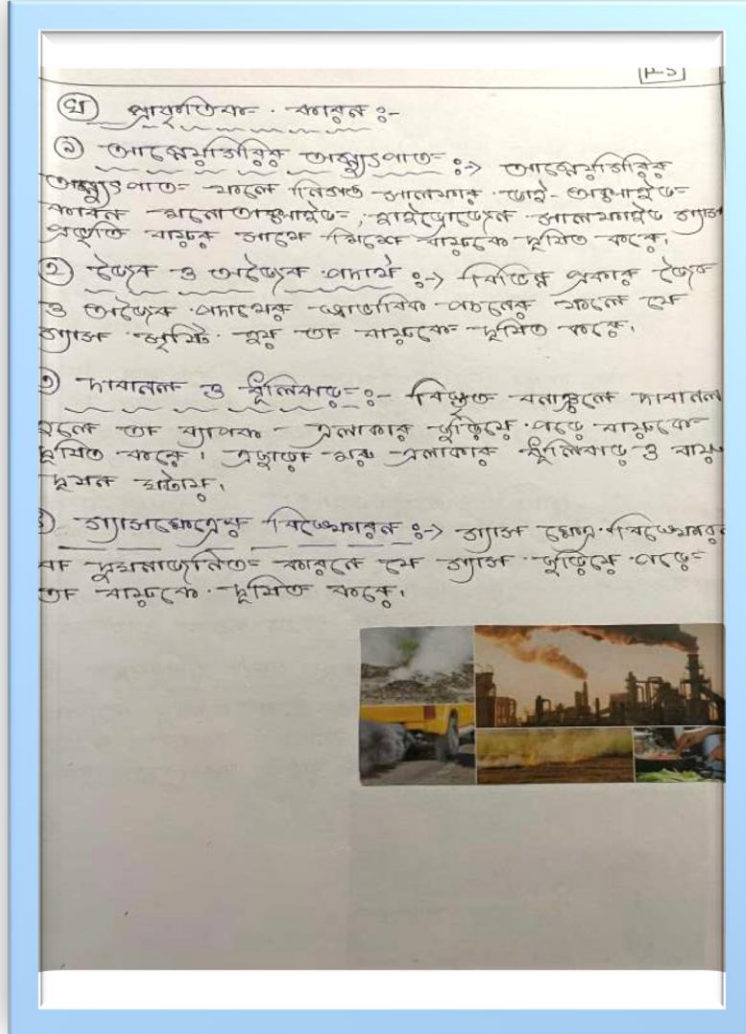 P-5
ঘ প্রাকৃতিক কারন :-
১ আগ্নেয়গিরির অগ্ন্যুৎপাত :→ আগ্নেয়গিরির
অগ্ন্যুৎপাত ফলে নির্গত সালফার ডাই-অক্সাইড
কার্বন মনোঅক্সাইড, হাইড্রোজেন সালফাইড গ্যাস
প্রভৃতি বায়ুর সাথে মিশে বায়ুকে দূষিত করে।
২ জৈব ও অজৈব পদার্থ :→ বিভিন্ন প্রকার জৈব
ও অজৈব পদার্থের স্বাভাবিক পচনের ফলে যে
গ্যাস সৃষ্টি হয় তা বায়ুকে দূষিত করে।
৩ দাবানল ও ধূলিঝড় :- বিস্তৃত বনাঞ্চলে দাবানল
হলে তা ব্যাপক এলাকার ছড়িয়ে পড়ে বায়ুকে
দূষিত করে। এছাড়া মরু এলাকার ধূলিঝড় ও বায়ু
দূষন ঘটায়।
গ্যাসক্ষেত্রের বিস্ফোরন :→ গ্যাস ক্ষেত্র বিস্ফোরন
বা দুর্ঘটনাজনিত কারনে যে গ্যাস ছড়িয়ে পড়ে
তা বায়ুকে দূষিত করে।